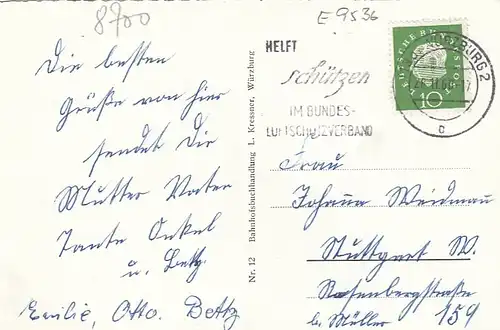 8700
E 9536
Die besten
Grüße von hier
sendet die
Mutter Vater
Tante Onkel
u. Betz
Emilie, Otto. Betty
Nr. 12 Bahnhofsbuchhandlung L. Kressner, Würzburg
HELFT
schützen
IM BUNDES-
LUFTSCHUTZVERBAND
WÜRZBURG 2
c
DEUTSCHE BUNDESPOST
10
Frau
Johanna Weidmann
Stuttgart W.
Rosenbergstraße
159
b. Müller